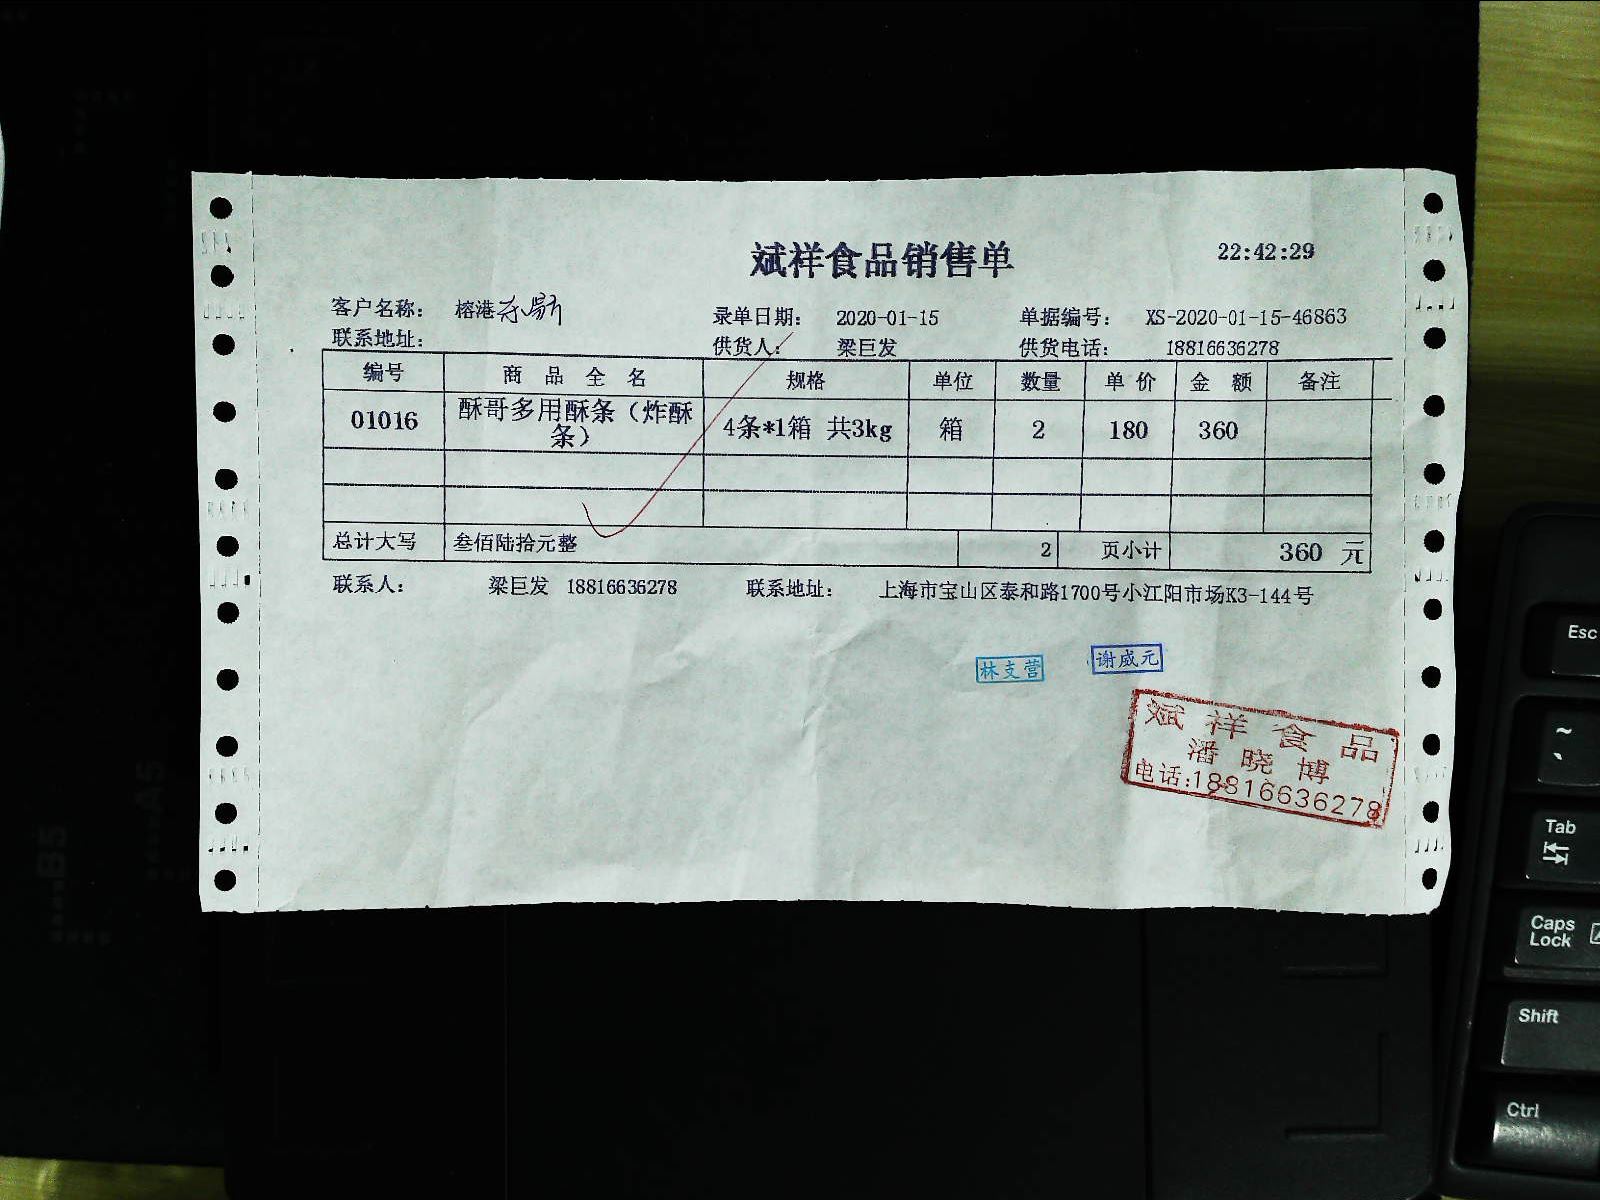 斌祥食品销售单
22:42:29
客户名称： 榕港
录单日期： 2020-01-15
单据编号： XS-2020-01-15-46863
联系地址：
供货人： 梁巨发
供货电话： 18816636278
编号 商品全名 规格 单位 数量 单价 金额 备注
01016 酥哥多用酥条（炸酥条） 4条*1箱 共3kg 箱 2 180 360
总计大写 叁佰陆拾元整 2 页小计 360 元
联系人： 梁巨发 18816636278 联系地址： 上海市宝山区泰和路1700号小江阳市场K3-144号
林支营
谢威元
斌祥食品
潘晓博
电话:18816636278
Esc
~
Tab
Caps Lock
Shift
Ctrl
B5
A5